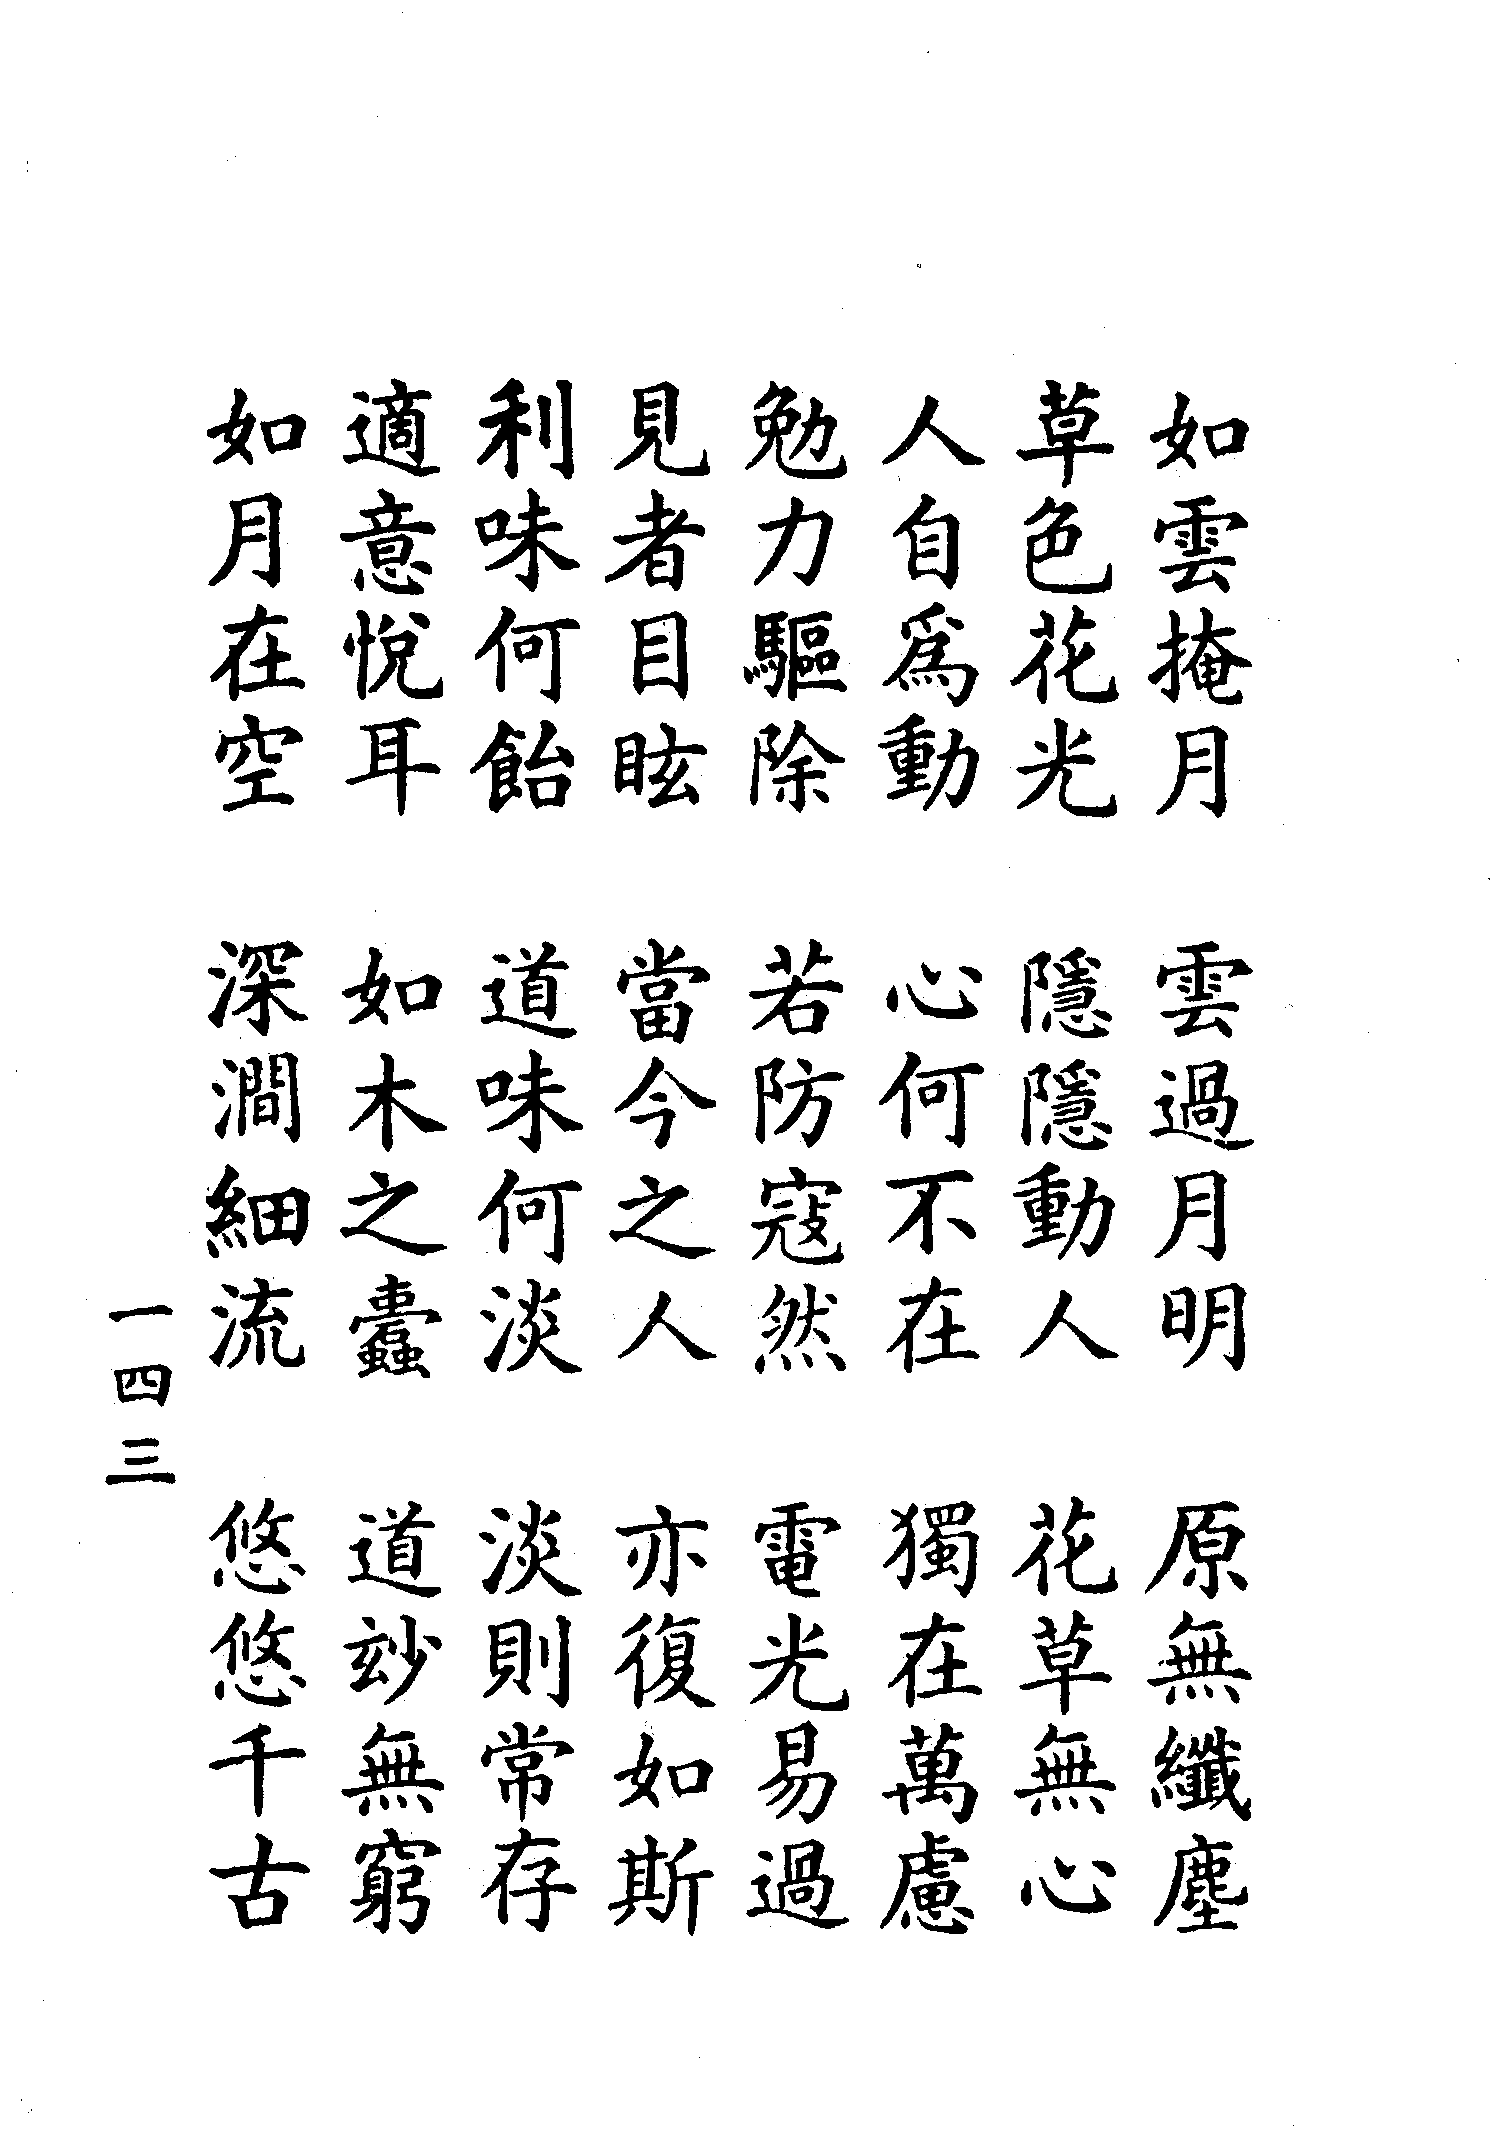 如雲掩月　雲過月明　原無纖塵
草色花光　隱隱動人　花草無心
人自爲動　心何不在　獨在萬慮
勉力驅除　若防寇然　電光易過
見者目眩　當今之人　亦復如斯
利味何飴　道味何淡　淡則常存
適意悅耳　如木之蠹　道玅無窮
如月在空　深澗細流　悠悠千古
一四三